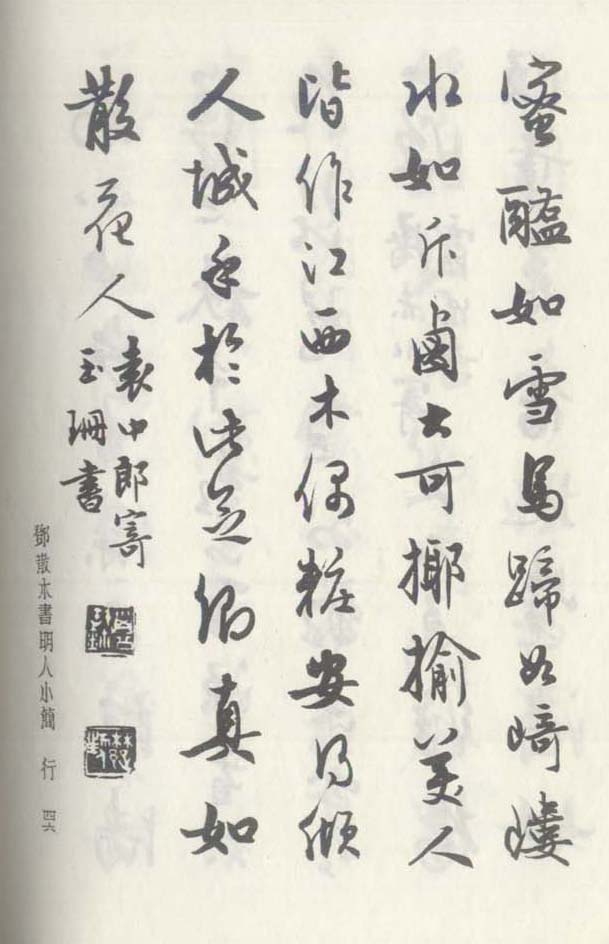 蜜醞如雪馬蹄如崎嶁
水如斥鹵大可揶揄美人
皆作江西木偶粧安得傾
人城乎於此真如
散花人
袁中郎寄
玉珊書
鄧散木書明人小簡 行 四六